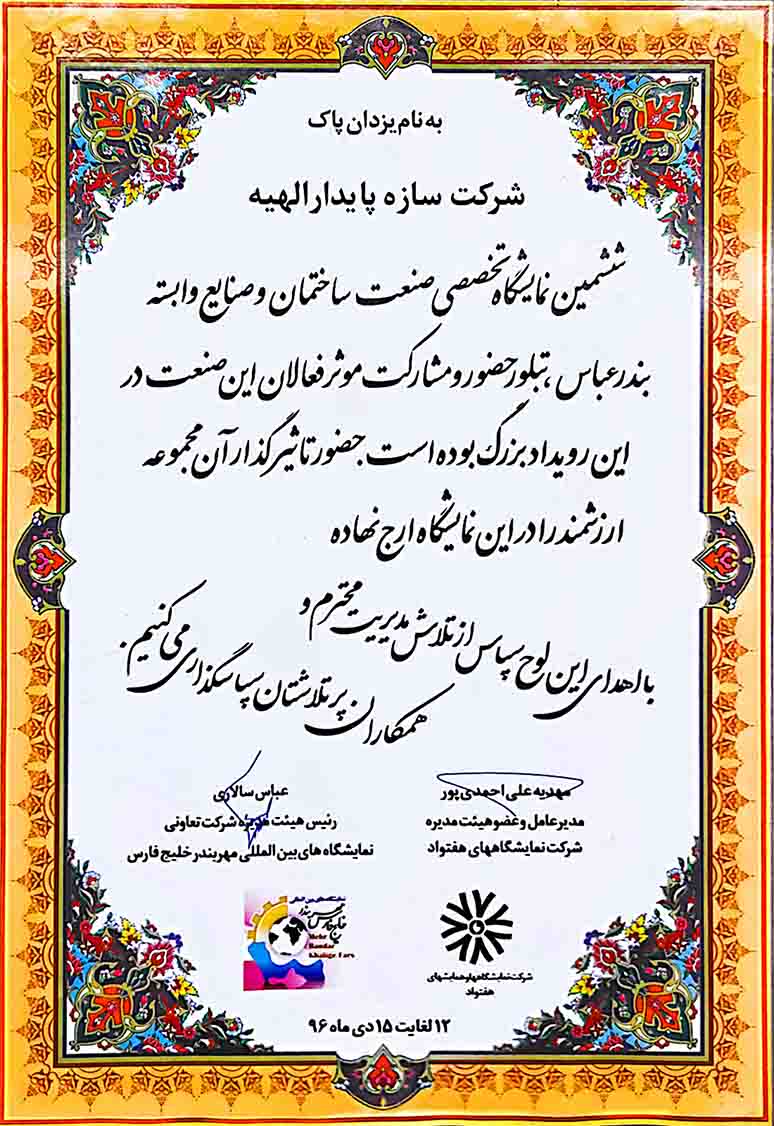 به نام یزدان پاک
شرکت سازه پایدار الهیه
ششمین نمایشگاه تخصصی صنعت ساختمان و صنایع وابسته
بندرعباس، تبلور حضور و مشارکت موثر فعالان این صنعت در
این رویداد بزرگ بوده است. حضور تاثیرگذار آن مجموعه
ارزشمند را در این نمایشگاه ارج نهاده
با اهدای این لوح سپاس از تلاش مدیریت محترم و
همکاران پر تلاشتان سپاسگذاری می کنیم.
مهدیه علی احمدی پور
مدیرعامل و عضو هیئت مدیره
شرکت نمایشگاههای هفتواد
عباس سالاری
رئیس هیئت مدیره شرکت تعاونی
نمایشگاه های بین المللی مهر بندر خلیج فارس
شرکت نمایشگاهها و همایشهای
هفتواد
نمایشگاه های بین المللی
مهر بندر
خلیج فارس
Mehr
Bandar
Khalige Fars
۱۲ لغایت ۱۵ دی ماه ۹۶